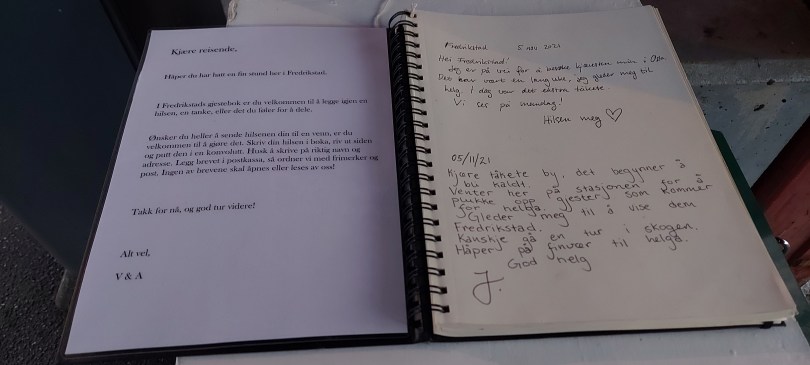 Kjære reisende,
Håper du har hatt en fin stund her i Fredrikstad.
I Fredrikstads gjestebok er du velkommen til å legge igjen en
hilsen, en tanke, eller det du liker for å dele.
Ønsker du heller å sende hilsenen din til en venn, er du
velkommen til å gjøre det. Skriv din hilsen i boka, riv ut siden
og putt den i en konvolutt. Husk å skrive på riktig navn og
adresse. Legg brevet i postkassa, så ordner vi med frimerker og
post. Ingen av brevene skal åpnes eller leses av oss!
Takk for nå, og god tur videre!
Alt vel,
V & A
Fredrikstad 5 nov 2021
Hei Fredrikstad!
Jeg er på vei for å besøke kjæresten min i Oslo.
Det har vært en lang uke, jeg gleder meg til
helg. I dag var det ekstra tåkete.
Vi ses på mandag!
Hilsen meg ♡
05/11/21
Kjære tåkete by, det begynner å
bli kaldt.
Venter her på stasjonen for å
plukke opp gjester som kommer
for helga.
Gleder meg til å vise dem
Fredrikstad.
Kanskje gå en tur i skogen.
Håper på finvær til helga.
God helg
J.